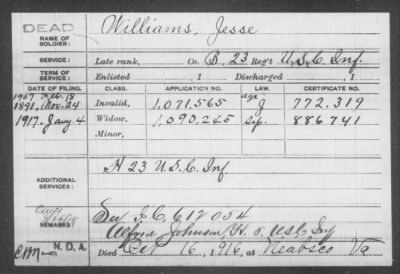 DEAD
NAME OF SOLDIER: Williams, Jesse
SERVICE: Late rank, Co. B, 23 Reg't U.S.C. Inf.
TERM OF SERVICE: Enlisted , 1 Discharged , 1
DATE OF FILING. CLASS. APPLICATION NO. LAW. CERTIFICATE NO.
1907 Feb. 18
1891, Nov. 24 Invalid, 1,071,565 age J 772.319
1917. Jany 4 Widow, 1,090,245 886741
Minor,
ADDITIONAL SERVICES: H 23 U.S.C. Inf
See I.C. 612054
REMARKS: Alfred Johnson, H. 5, USC Inf
N.D.A. Died Oct 16, 1916, at Neabsco Va